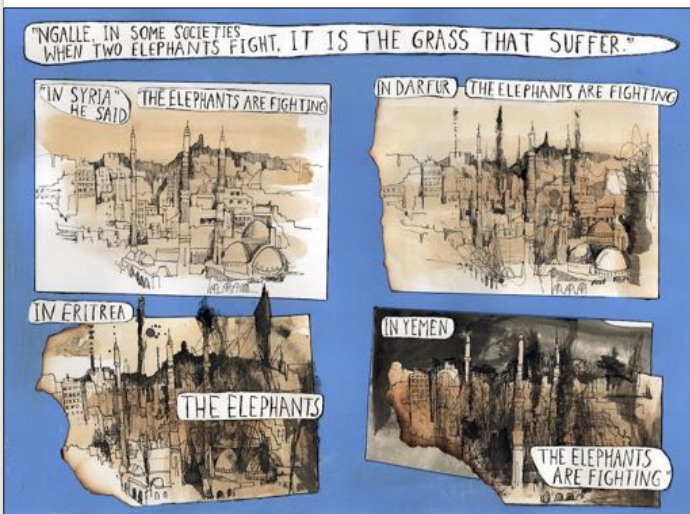 "NGALLE, IN SOME SOCIETIES
WHEN TWO ELEPHANTS FIGHT, IT IS THE GRASS THAT SUFFER."
"IN SYRIA"
HE SAID
THE ELEPHANTS ARE FIGHTING
IN DARFUR
THE ELEPHANTS ARE FIGHTING
IN ERITREA
THE ELEPHANTS
IN YEMEN
THE ELEPHANTS
ARE FIGHTING"